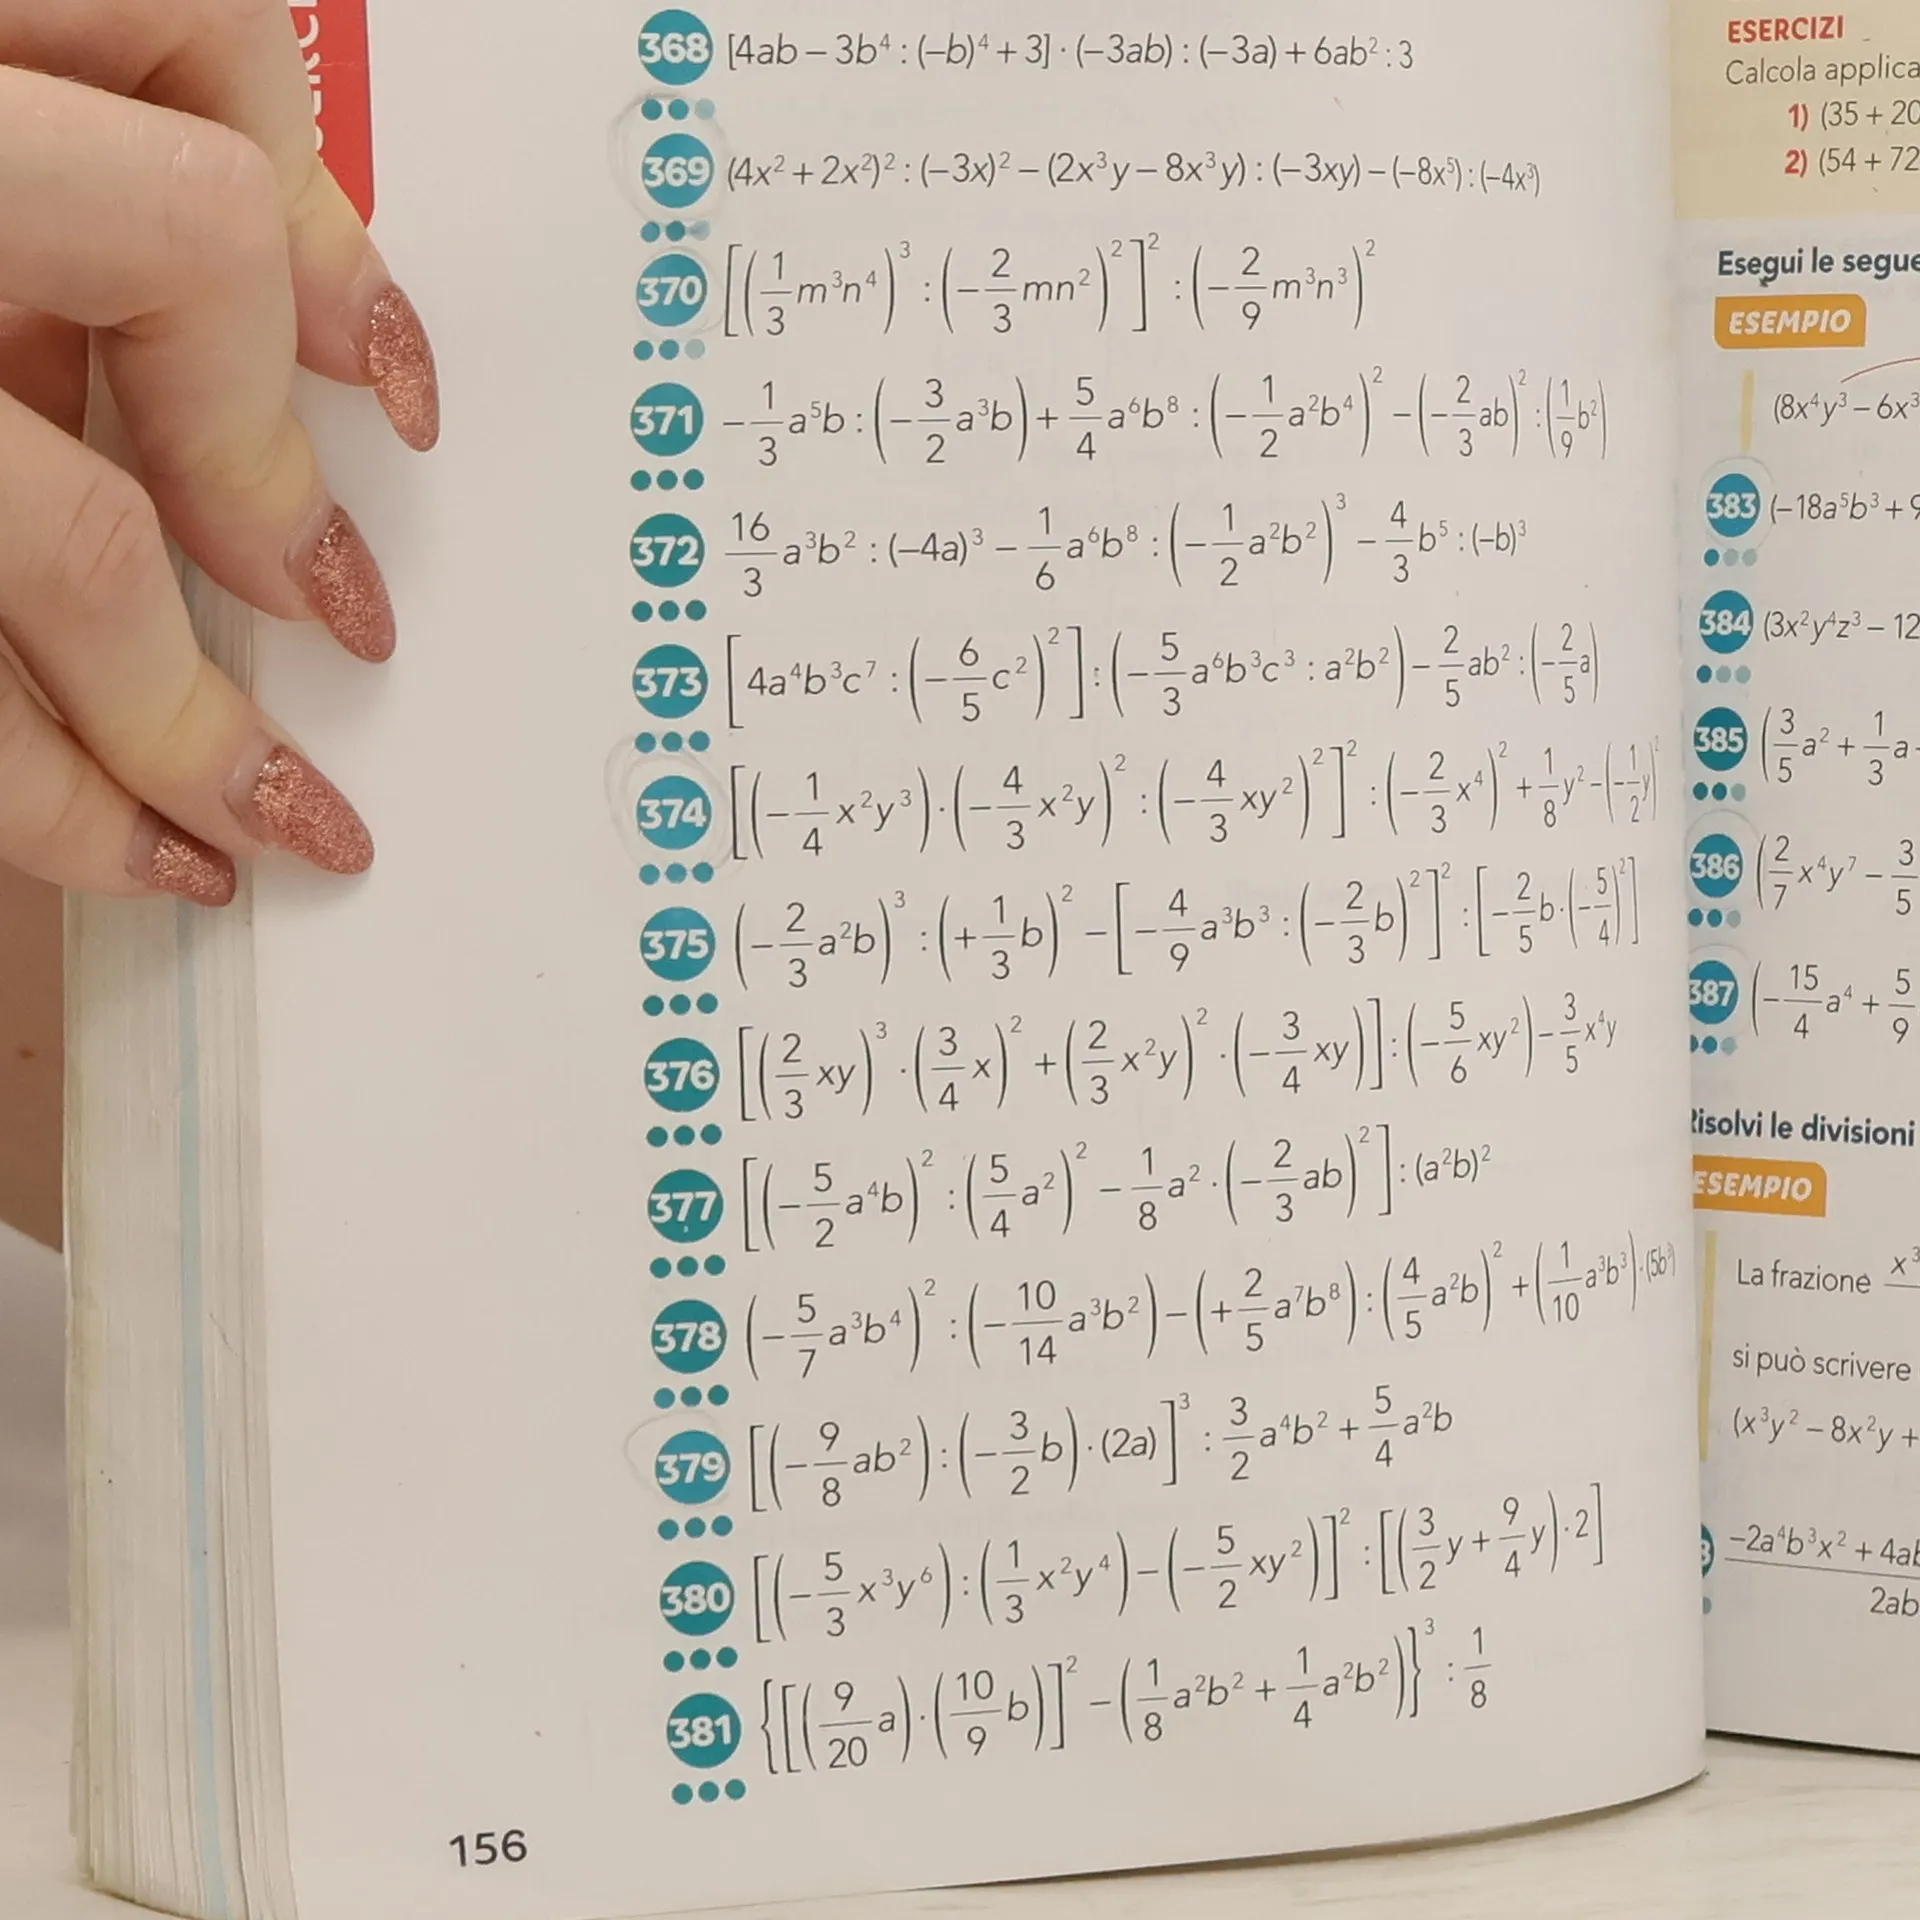 368 [4ab – 3b⁴ : (–b)⁴ + 3] · (–3ab) : (–3a) + 6ab² : 3
369 (4x² + 2x²)² : (–3x)² – (2x³y – 8x³y) : (–3xy) – (–8x⁵) : (–4x³)
370 [(1/3 m³n⁴)³ : (–2/3 mn²)²]² : (–2/9 m³n³)²
371 –1/3 a⁵b : (–3/2 a³b) + 5/4 a⁶b⁸ : (–1/2 a²b⁴)² – (–2/3 ab)² : (1/9 b²)
372 16/3 a³b² : (–4a)³ – 1/6 a⁶b⁸ : (–1/2 a²b²)³ – 4/3 b⁵ : (–b)³
373 [4a⁴b³c⁷ : (–6/5 c²)²] : (–5/3 a⁶b³c³ : a²b²) – 2/5 ab² : (–2/5 a)
374 [(–1/4 x²y³) · (–4/3 x²y)² : (–4/3 xy²)²]² : (–2/3 x⁴)² + 1/8 y² – (–1/2 y)²
375 (–2/3 a²b)³ : (+1/3 b)² – [–4/9 a³b³ : (–2/3 b)²]² : [–2/5 b · (–5/4)²]
376 [(2/3 xy)³ · (3/4 x)² + (2/3 x²y)² · (–3/4 xy)] : (–5/6 xy²) – 3/5 x⁴y
377 [(–5/2 a⁴b)² : (5/4 a²)² – 1/8 a² · (–2/3 ab)²] : (a²b)²
378 (–5/7 a³b⁴)² : (–10/14 a³b²) – (+2/5 a⁷b⁸) : (4/5 a²b)² + (1/10 a³b³) · (5b³)
379 [(–9/8 ab²) : (–3/2 b) · (2a)]³ : 3/2 a⁴b² + 5/4 a²b
380 [(–5/3 x³y⁶) : (1/3 x²y⁴) – (–5/2 xy²)]² : [(3/2 y + 9/4 y) · 2]
381 {[(9/20 a) · (10/9 b)]² – (1/8 a²b² + 1/4 a²b²)}³ : 1/8
156
ESERCIZI
Calcola applica
1) (35 + 20
2) (54 + 72
Esegui le segue
ESEMPIO
(8x⁴y³ – 6x³
383 (–18a⁵b³ + 9
384 (3x²y⁴z³ – 12
385 (3/5 a² + 1/3 a
386 (2/7 x⁴y⁷ – 3/5
387 (–15/4 a⁴ + 5/9
Risolvi le divisioni
ESEMPIO
La frazione x³
si può scrivere
(x³y² – 8x²y +
–2a⁴b³x² + 4ab
2ab